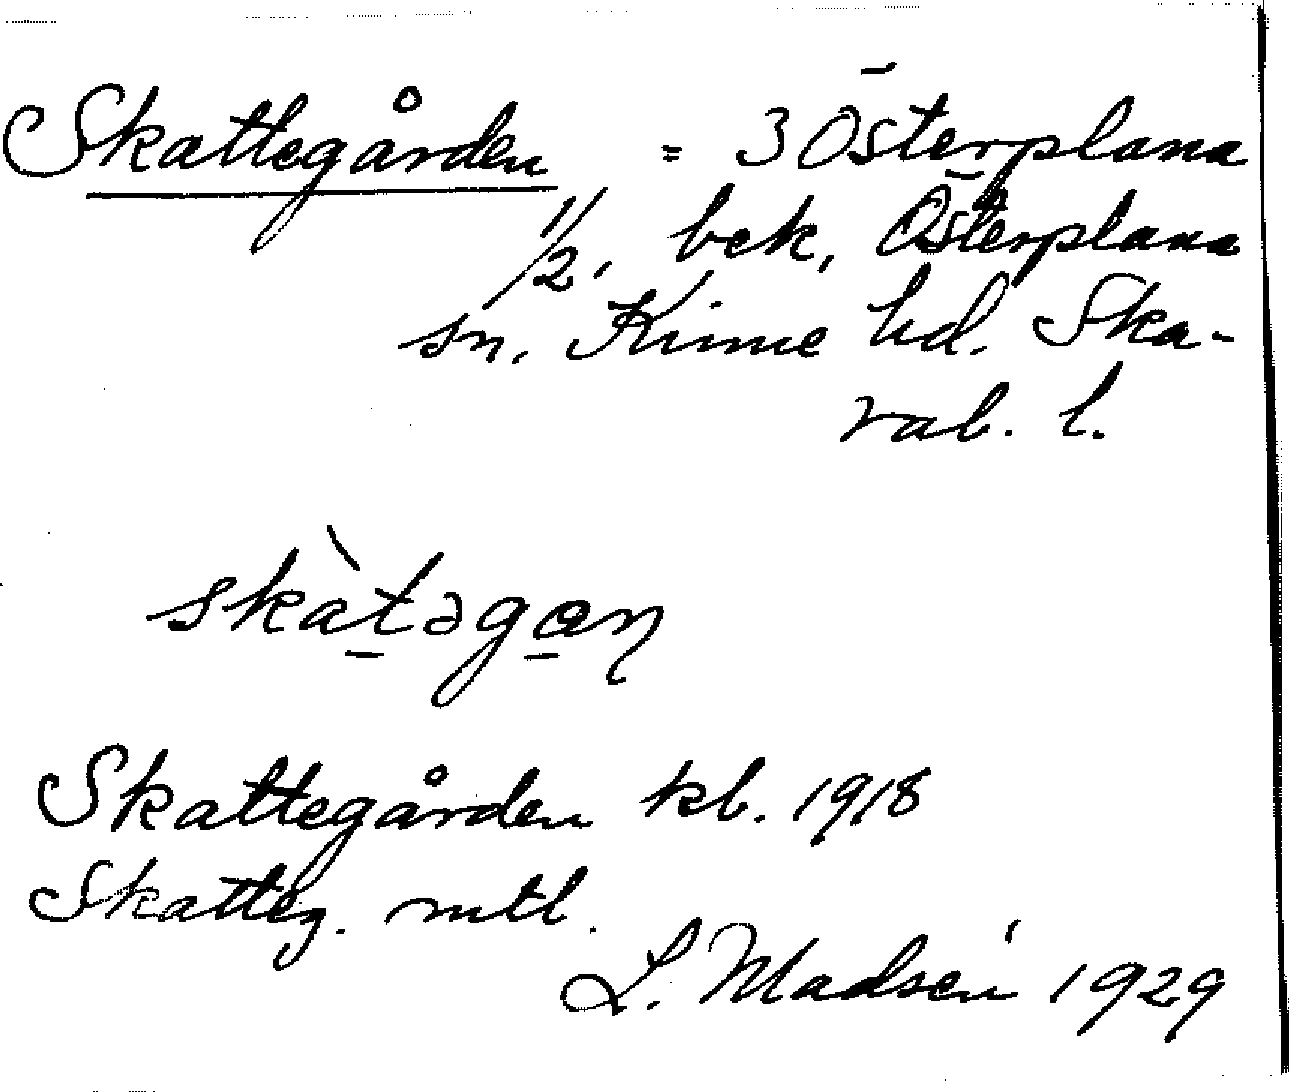 Skattegården = 3 Österplana
1/2, bek, Österplana
sn. Kinne hd. Ska-
rab. l.
skàtəgan
Skattegården kb. 1918
Skatteg. mtl.
L. Madsén 1929